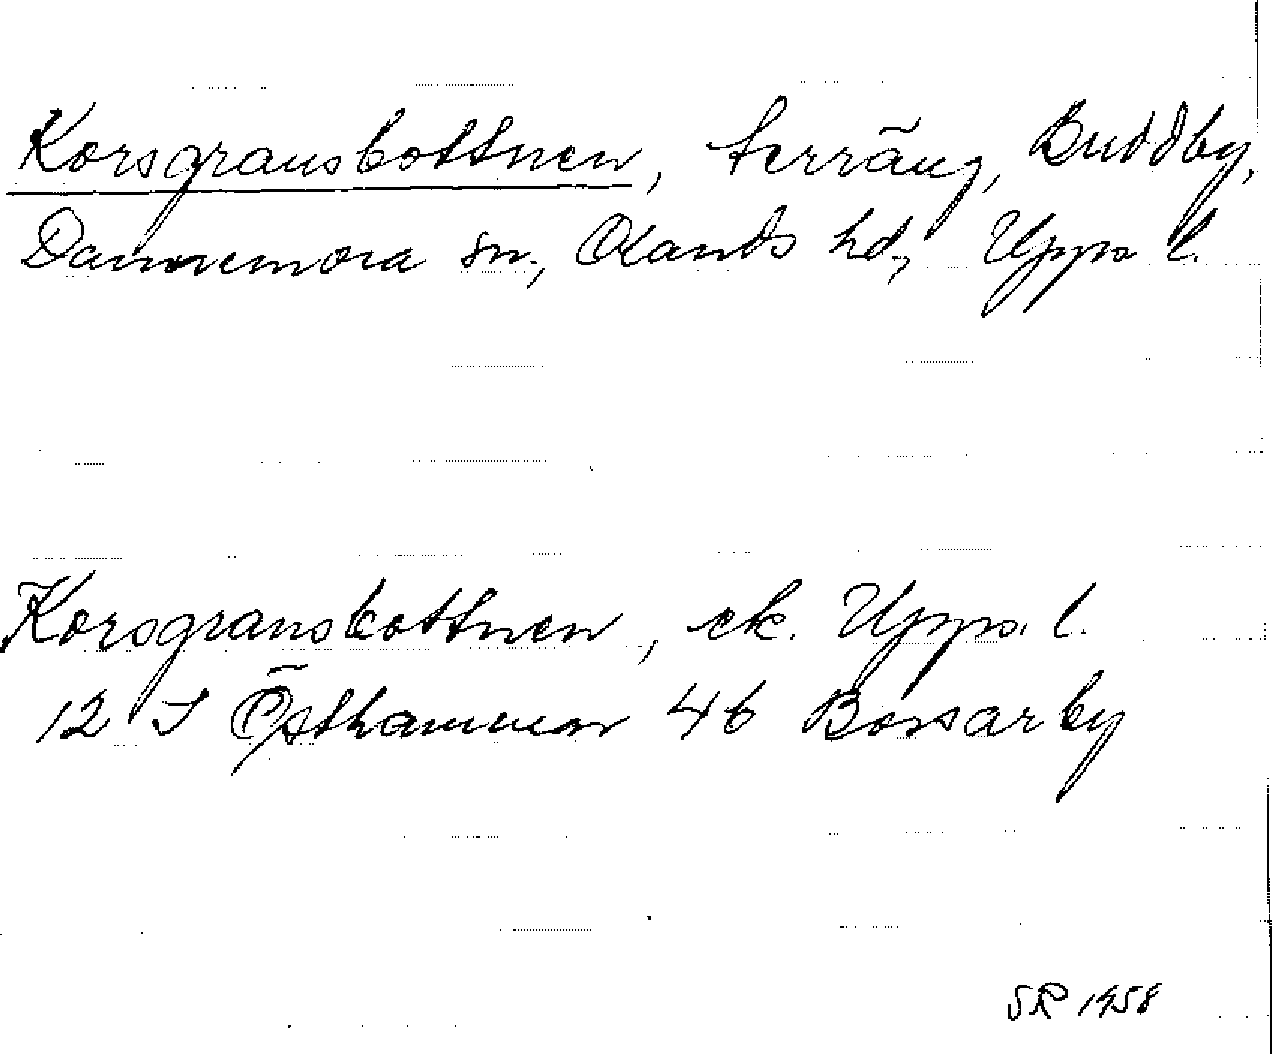 Korsgransbottnen, terräng, Buddby,
Dannemora sn, Olands hd, Upps l.
Korsgransbottnen, ek. Upps. l.
12 I Östhammar 4b Bossarby
SR 1958